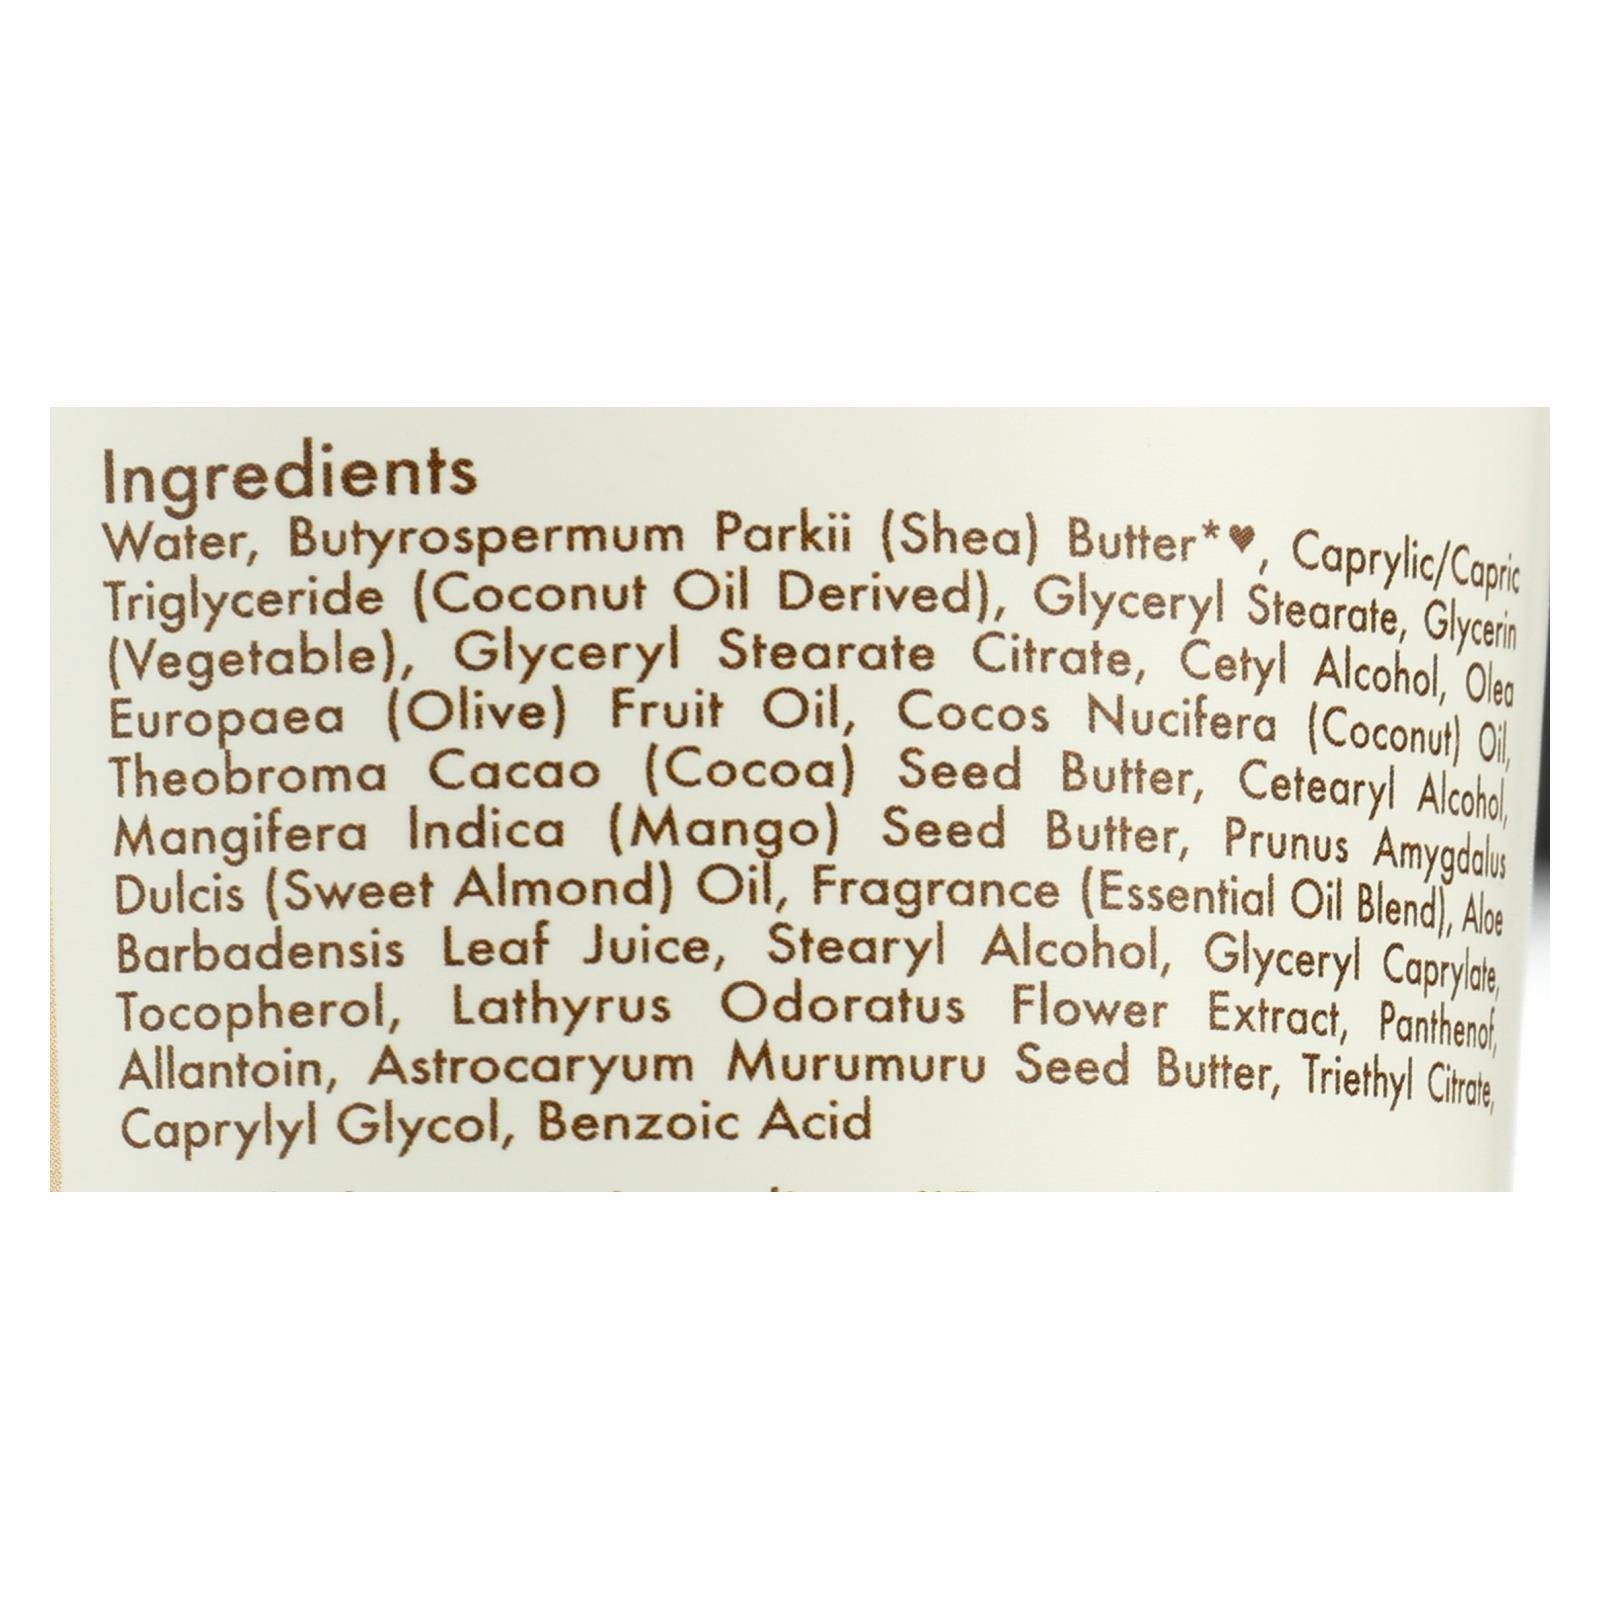 Ingredients
Water, Butyrospermum Parkii (Shea) Butter*♥, Caprylic/Capric
Triglyceride (Coconut Oil Derived), Glyceryl Stearate, Glycerin
(Vegetable), Glyceryl Stearate Citrate, Cetyl Alcohol, Olea
Europaea (Olive) Fruit Oil, Cocos Nucifera (Coconut) Oil,
Theobroma Cacao (Cocoa) Seed Butter, Cetearyl Alcohol,
Mangifera Indica (Mango) Seed Butter, Prunus Amygdalus
Dulcis (Sweet Almond) Oil, Fragrance (Essential Oil Blend), Aloe
Barbadensis Leaf Juice, Stearyl Alcohol, Glyceryl Caprylate,
Tocopherol, Lathyrus Odoratus Flower Extract, Panthenol,
Allantoin, Astrocaryum Murumuru Seed Butter, Triethyl Citrate,
Caprylyl Glycol, Benzoic Acid